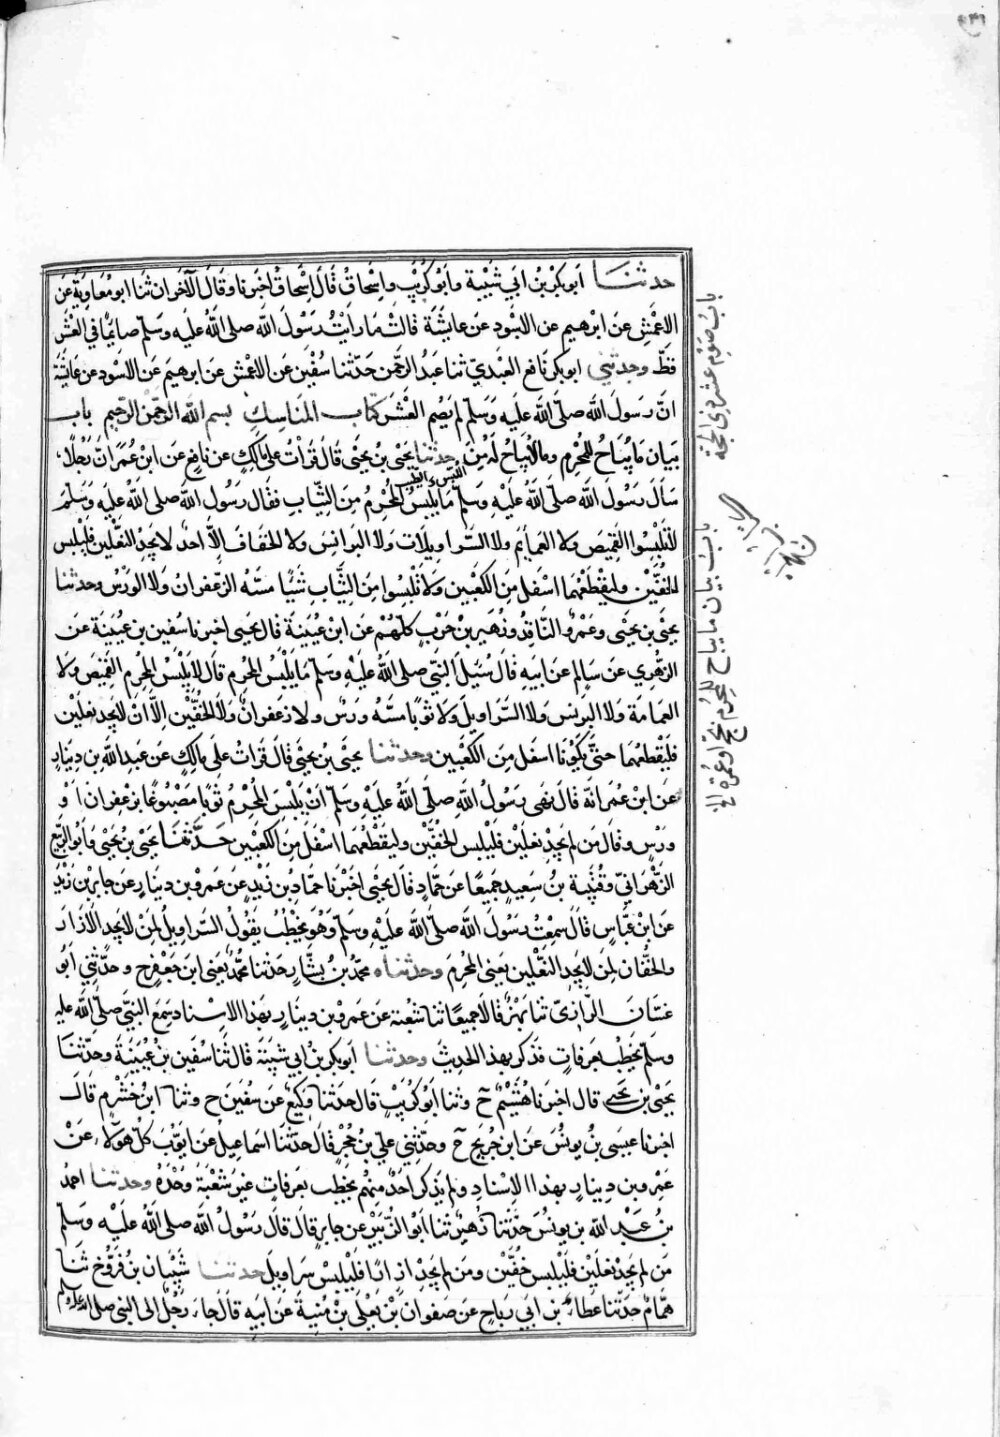 حدثنا أبو بكر بن أبي شيبة وأبو كريب وإسحاق قال إسحاق اخبرنا وقال الآخران ثنا ابو معاوية عن
الاعمش عن ابرهيم عن الاسود عن عايشة قالت ما رايت رسول الله صلى الله عليه وسلم صايما في العشر
قط وحدثني ابو بكر نافع العبدي ثنا عبد الرحمن حدثنا سفين عن الاعمش عن ابرهيم عن الاسود عن عايشة
ان رسول الله صلى الله عليه وسلم لم يصم العشر كتاب المناسك بسم الله الرحمن الرحيم باب
بيان ما يباح للمحرم وما لا يباح له من حدثنا يحيى بن يحيى قال قرات على مالك عن نافع عن ابن عمر ان رجلا
سأل رسول الله صلى الله عليه وسلم ما يلبس المحرم من الثياب فقال رسول الله صلى الله عليه وسلم
لا تلبسوا القميص ولا العمايم ولا السراويلات ولا البرانس ولا الخفاف الا احد لا يجد النعلين فليلبس
الخفين وليقطعهما اسفل من الكعبين ولا تلبسوا من الثياب شيئا مسه الزعفران ولا الورس وحدثنا
يحيى بن يحيى وعمرو الناقد وزهير بن حرب كلهم عن ابن عيينة قال يحيى اخبرنا سفين بن عيينة عن
الزهري عن سالم عن ابيه قال سئل النبي صلى الله عليه وسلم ما يلبس المحرم قال لا يلبس المحرم القميص ولا
العمامة ولا البرنس ولا السراويل ولا ثوبا مسه ورس ولا زعفران ولا الخفين الا ان لا يجد نعلين
فليقطعهما حتى يكونا اسفل من الكعبين وحدثنا يحيى بن يحيى قال قرات على مالك عن عبد الله بن دينار
عن ابن عمر انه قال نهى رسول الله صلى الله عليه وسلم ان يلبس المحرم ثوبا مصبوغا بزعفران او
ورس وقال من لم يجد نعلين فليلبس الخفين وليقطعهما اسفل من الكعبين حدثنا يحيى بن يحيى وأبو الربيع
الزهراني وقتيبة بن سعيد جميعا عن حماد قال يحيى اخبرنا حماد بن زيد عن عمرو بن دينار عن جابر بن زيد
عن ابن عباس قال سمعت رسول الله صلى الله عليه وسلم وهو يخطب يقول السراويل لمن لا يجد الازار
والخفان لمن لا يجد النعلين يعني المحرم وحدثناه محمد بن بشار حدثنا محمد يعني ابن جعفر ح وحدثني ابو
غسان الرازي ثنا بهز قالا جميعا ثنا شعبة عن عمرو بن دينار بهذا الاسناد سمع النبي صلى الله عليه
وسلم يخطب بعرفات فذكر بهذا الحديث وحدثنا ابو بكر بن ابي شيبة قال ثنا سفين بن عيينة وحدثنا
يحيى بن يحيى قال اخبرنا هشيم ح وثنا ابو كريب قال حدثنا وكيع عن سفين ح وثنا ابن خشرم قال
اخبرنا عيسى بن يونس عن ابن جريج ح وحدثني علي بن حجر قال حدثنا اسماعيل عن ايوب كل هولاء عن
عمرو بن دينار بهذا الاسناد ولم يذكر احد منهم يخطب بعرفات غير شعبة وحده وحدثنا احمد
بن عبد الله بن يونس حدثنا زهير ثنا ابو الزبير عن جابر قال قال رسول الله صلى الله عليه وسلم
من لم يجد نعلين فليلبس خفين ومن لم يجد ازارا فليلبس سراويل حدثنا شيبان بن فروخ ثنا
همام حدثنا عطاء بن ابي رباح عن صفوان بن يعلى بن منية عن ابيه قال جاء رجل الى النبي صلى الله عليه وسلم
باب صوم عشر ذي الحجة
باب بيان ما يباح للمحرم بحج او عمرة